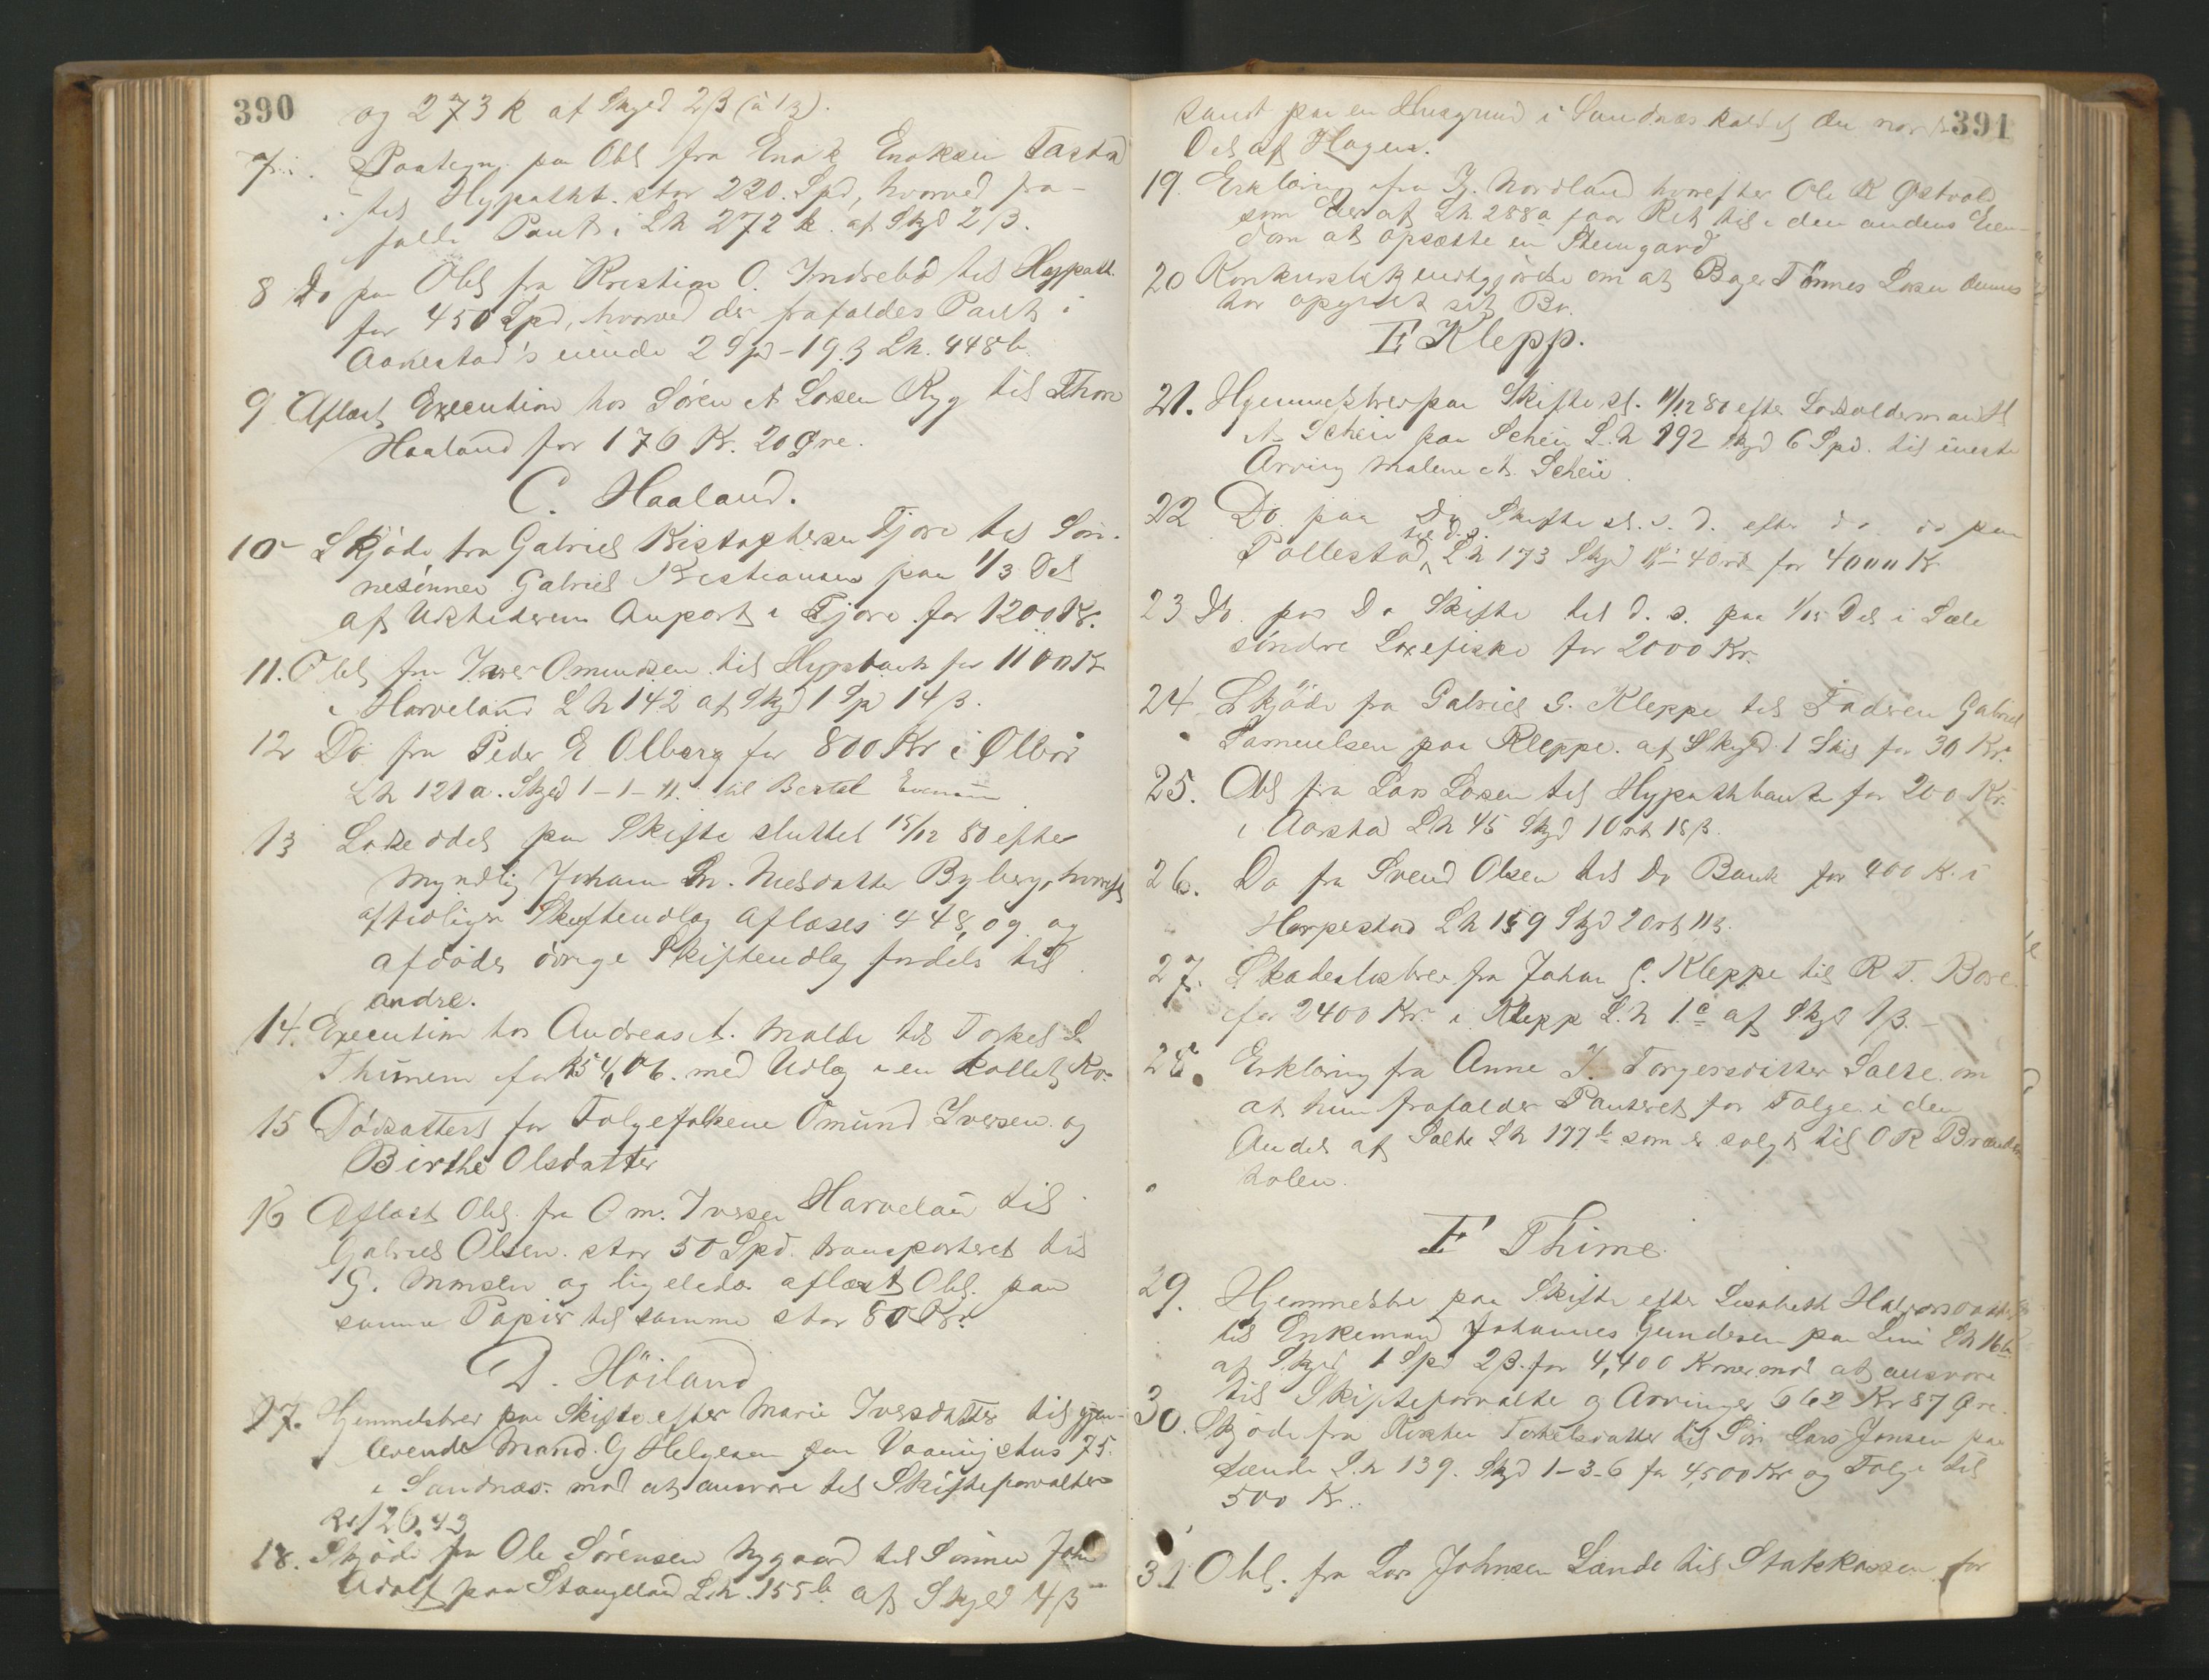 390
og 273 k af Skyld 2ß (à 1ß).
7. Paategn. paa Obl fra Enok Enoksen Tasta
til Hypothkt. stor 220 Spd, hvorved fra-
falls Pant i Lh 272 k. af Skyld 2ß.
8 Do paa Obl fra Kristian O. Indrebö til Hypothk
for 450 Spd, hvorved der frafaldes Pant i
2 Spd - 19 ß Lh. 448b.
9 Aflæst Execution hos Sören A Larsen Ryg til Thore
Haaland for 176 Kr. 20 Øre.
C. Haaland.
10 Skjöde fra Gabriel Kristophersen Tjore til Sön-
nesönnen Gabriel Kristiansen paa 1/3 Del
af Udstederens Anpart i Tjore for 1200 Kr.
11. Obl fra Iver Omundsen til Hypbank for 1100 Kr
i Harveland Lh 142 af Skyld 1 Spd 14ß.
12 Do fra Peder E Olberg for 800 Kr i Ølbör
Lh 121a. Skyld 1-1-11. til Bertel
13 paa Skifte sluttet 15/12 80 efter
Myndlig Johann M. Nilsdatter Byberg, hvorefter
aftidligere Skifteudlæg aflæses 448,09 og
afdödes övrige Skifteudlæg fordels til
andre.
14. Execution hos Andreas A. Malde til Torkel S
Thunem for 154,06. med Udlæg i en kollet Ko.
15 Dödsattest for Folgefolkene Omund Iversen og
Birthe Olsdatter
16 Aflæst Obl. fra Om. Iversen Harveland til
Gabriel Olsen. stor 50 Spd. transporteret til
G. Monsen og ligeledes aflæst Obl. paa
samme Papir til samme stor 80 Kr.
D. Höiland
17. Hjemmelsbrev paa Skifte efter Marie Iversdatter til gjen-
levende Mand. G Helgesen paa Vaaningshus 75.
i Sandnæs. mod at ansvare til Skifteforvalter
Kr 126,43
18. Skjöde fra Ole Sörensen Nygaard til Sönnen John
Adolf paa Stangeland Lh. 155b af Skyld 4ß
391
samt paa en Husgrund i Sandnæs kaldet den nordre
Del af Hagen.
19. Erklæring fra J. Nordland hvorefter Ole K Østvold
som Eier af Lh 288a faar Ret til i den andens Eien-
dom at opsætte en Stengard
20 Konkursbekjendtgjörelse om at Bager Tönnes Larsen
har opgivet sit Bo.
E Klepp.
21. Hjemmelsbrev paa Skifte sl. 11/12 80 efter
A. Scheie paa Scheie L.h 192 Skyld 6 Spd. til eneste
Arving Malene A. Scheie.
22 Do paa Do Skifte sl. s. d. efter do do paa
til d.s.
Pollestad, Lh 173 for 4000 Kr
23 Do. paa Do Skifte til d. s. paa 1/15 Del i Sæle
söndre Laxefiske for 2000 Kr.
24 Skjöde fra Gabriel G. Kleppe til Faderen Gabriel
Samuelsen paa Kleppe. af Skyld 1 Skil for 30 Kr.
25. Obl fra Lars Larsen til Hypothbank for 200 Kr.
i Aarsta Lh 45 Skyld 1 Ort 18ß.
26. Do fra Svend Olsen til Do Bank for 400 K. i
Horpestad Lh 159 Skyld 2 Ort 11ß.
27. Skadeslosbrev fra Johan G. Kleppe til R T. Bore
for 2400 Kr. i Klepp L.h 1c af Skyld 1ß.-
28. Erklæring fra Anne J. Torgersdatter Salte om
at hun frafalder Panteret for Folge i den
Andel af Salte Lh 177b som er solgt til O R
holen.
F Thime.
29. Hjemmelsbr paa Skifte efter Lisabeth Halvorsdatter
til Enkemand Johannes Gundersen paa Line Lh 16b
af Skyld 1 Spd 2ß. for 4,400 Kroner mod at ansvare
til Skifteforvalter og Arvinger 662 Kr 87 Øre.
30. Skjöde fra Torkelsdatter til Sön Lars Jonsen paa
Lænde L.h 139. Skyld 1-3-6 for 4,500 Kr og Folge til
500 Kr.
31 Obl. fra Lars Johnsen Lænde til Statskassen for